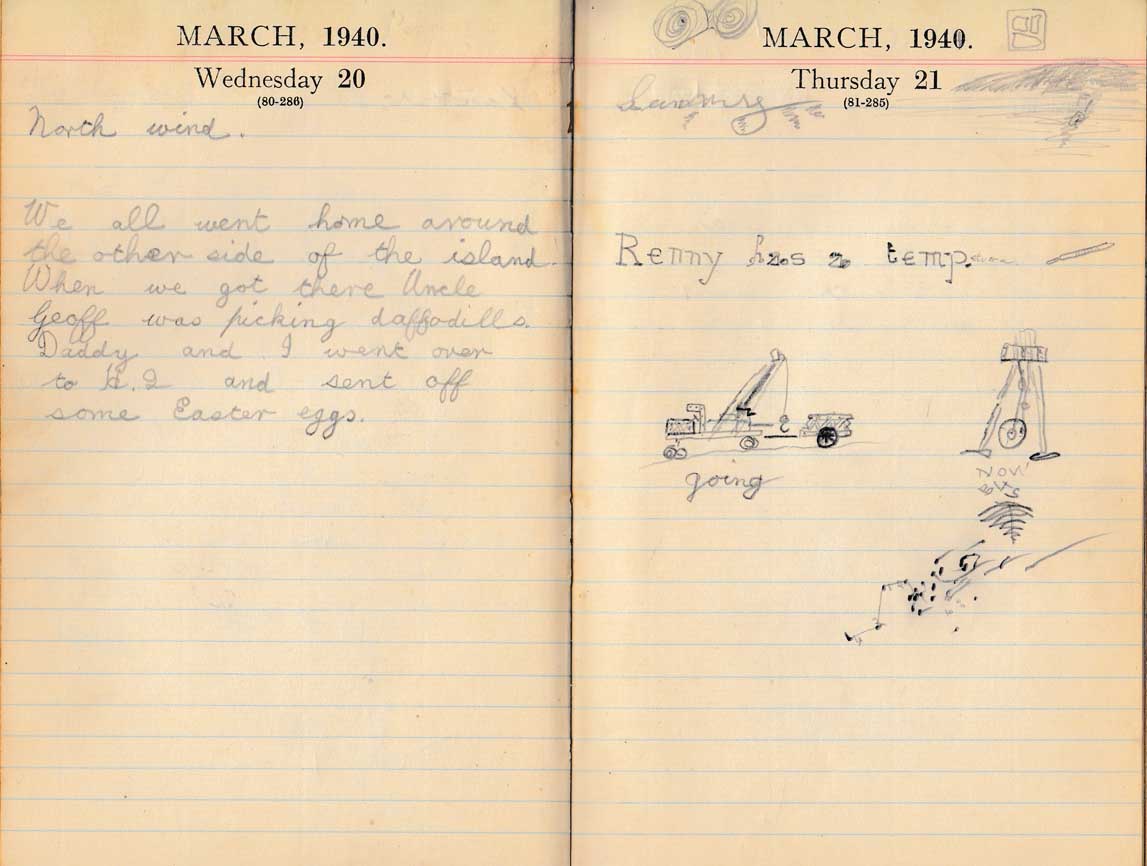 MARCH, 1940.
Wednesday 20
(80-286)
North wind.
We all went home around
the other side of the island.
When we got there Uncle
Geoff was picking daffodills.
Daddy and I went over
to H.I and sent off
some Easter eggs.
MARCH, 1940.
Thursday 21
(81-285)
Renny has a temp.
going
NOW